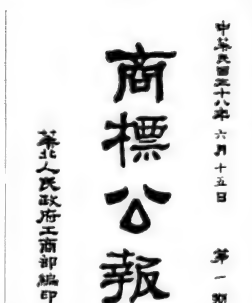 中華民國三十八年 六月十五日 第一期
商標公報
華北人民政府工商部編印